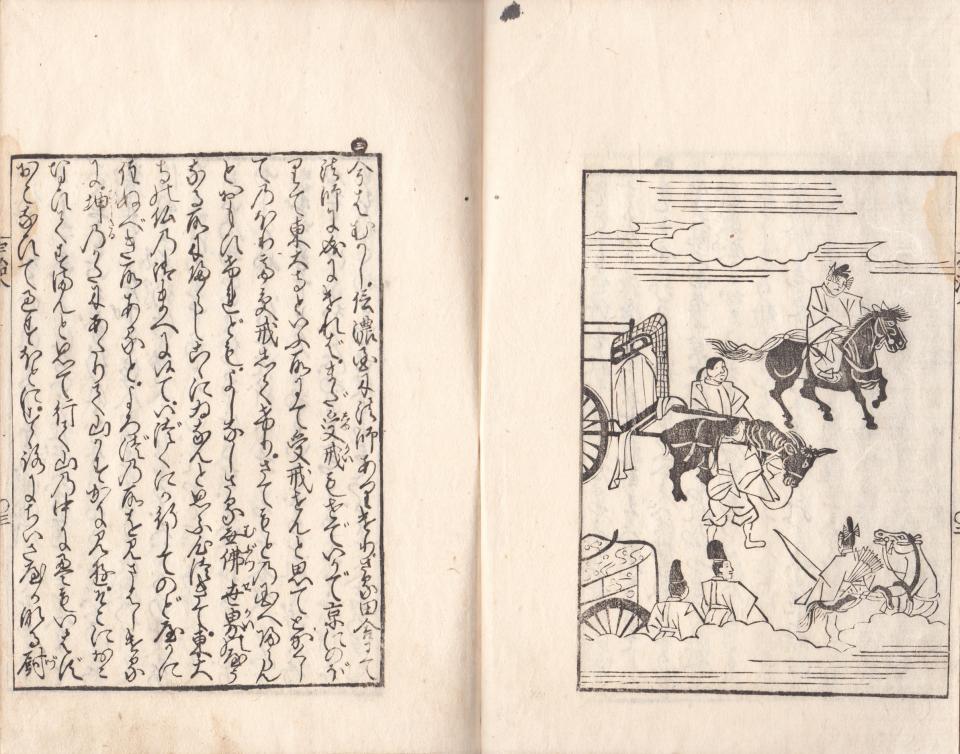 三
今はむかし信濃国に法師ありけりさる田舎にて
法師に成にければまだ受戒もせでいかで京にのぼ
りて東大寺といふ所にて受戒せんと思てとかくし
てのぼりて受戒してけりさてもとの国へ帰らん
とおもひけれどもよしなしさる無佛世界のやう
なる所に帰らじここにゐなんと思ふ心つきて東大
寺の仏の御まへに候ていづくにか行してのどやかに
住ぬべき所あると よろづの所を見まはしける
に坤のかたにあたりて山かすかに見ゆそこにおこ
なひてすまんと思て行て山の中にえもいはず
おこなひて過すほどにすゞろにちいさやかなる厨